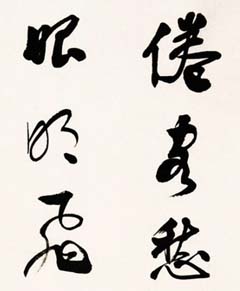 倦客愁
眼明飛